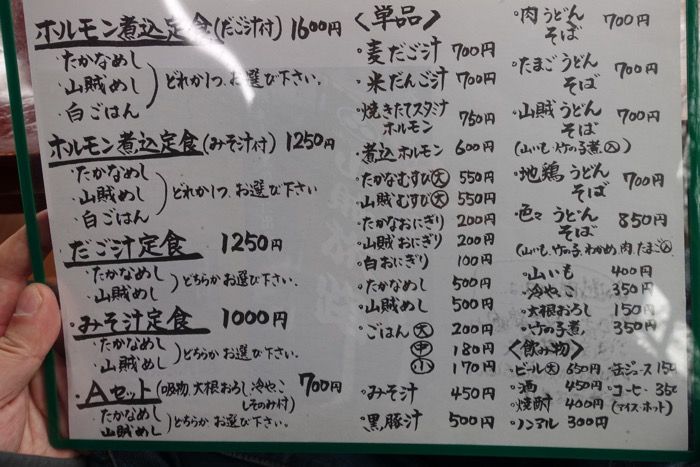 ホルモン煮込定食(だご汁付) 1600円
・たかなめし
・山賊めし
・白ごはん
どれか1つ、お選び下さい。
ホルモン煮込定食(みそ汁付) 1250円
・たかなめし
・山賊めし
・白ごはん
どれか1つ、お選び下さい
だご汁定食 1250円
・たかなめし
・山賊めし
どちらかお選び下さい。
・みそ汁定食 1000円
・たかなめし
・山賊めし
どちらかお選び下さい。
・Aセット(吸物、大根おろし、冷やっこ 700円
しそのみ付)
・たかなめし
・山賊めし
どちらかお選び下さい。
〈単品〉
・麦だご汁 700円
・米だんご汁 700円
・焼きたてスタミナ
ホルモン 750円
・煮込ホルモン 600円
・たかなむすび(大) 550円
・山賊むすび(大) 550円
・たかなおにぎり 200円
・山賊おにぎり 200円
・白おにぎり 100円
・たかなめし 500円
・山賊めし 500円
・ごはん(大) 200円
(中) 180円
(小) 170円
・みそ汁 450円
・黒豚汁 500円
・肉うどん
そば 700円
・たまごうどん
そば 700円
・山賊うどん
そば 700円
(山いも、竹の子煮入)
・地鶏うどん
そば 700円
・色々うどん
そば 850円
(山いも、竹の子、わかめ、肉、たまご入)
・山いも 400円
・冷やっこ 350円
・大根おろし 150円
・竹の子煮 350円
〈飲み物〉
・ビール(大) 650円
・酒 450円
・焼酎 400円
・ノンアル 300円
・缶ジュース 150
・コーヒー 350
(アイス・ホット)